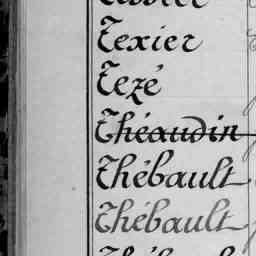 Texier
Tezé
Théaudin
Thébault
Thébault